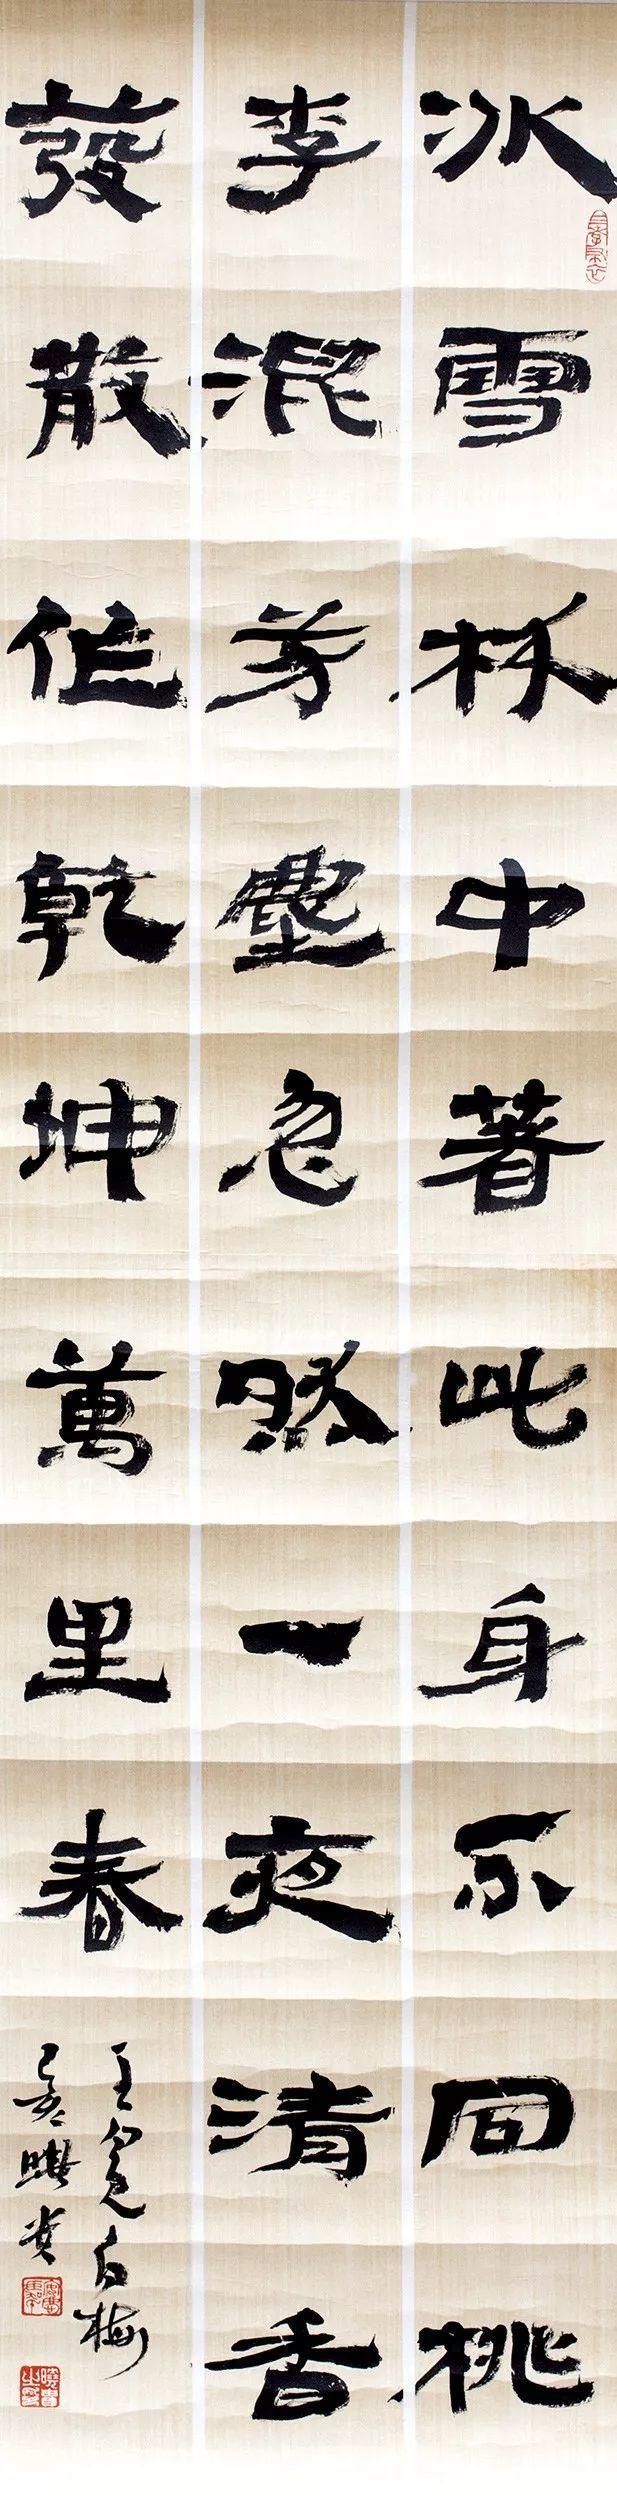 冰雪林中著此身不同桃
李混芳塵忽然一夜清香
發散作乾坤萬里春
王冕白梅